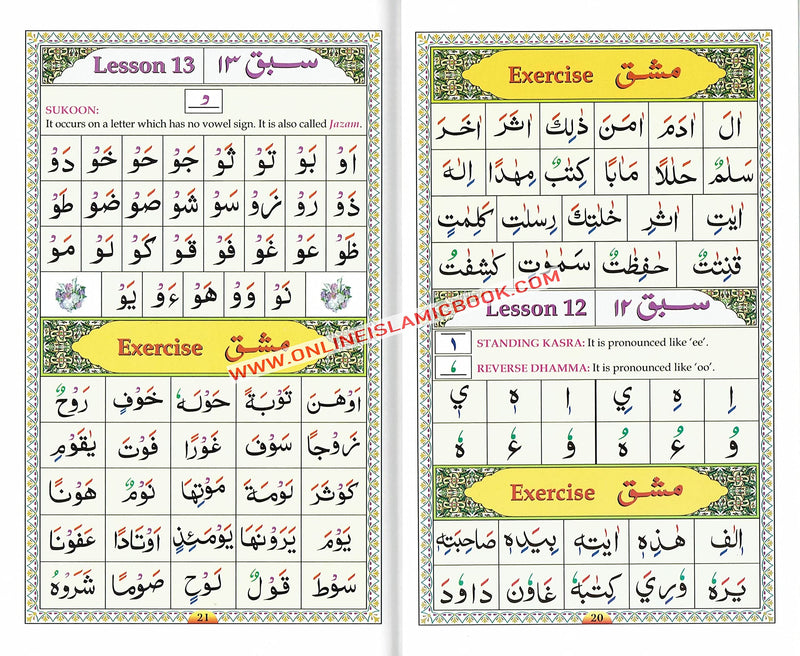 Exercise مشق
اٰلَ اٰدَمَ اٰمَنَ ذٰلِكَ اٰثَرَ اٰخَرَ
سَلٰمٌ حَلٰلًا مَاٰبًا كِتٰبٌ مِهٰدًا اِلٰهَ
اٰيٰتِ اٰثٰرِ خَلٰتِكَ رِسٰلٰتِ كَلِمٰتٍ
قٰنِتٰتٌ حٰفِظٰتٌ سَمٰوٰتٍ كٰشِفٰتُ
Lesson 12 سبق ١٢
STANDING KASRA: It is pronounced like ‘ee’.
REVERSE DHAMMA: It is pronounced like ‘oo’.
اِ هِ يِ اٖ هٖ يٖ
وُ ءُ هُ وٗ ءٗ هٗ
Exercise مشق
اٖلٰفِ هٰذِهٖ اٰيٰتِهٖ بِيَدِهٖ صَاحِبَتِهٖ
يَرَهٗ وٗرِيَ كِتٰبَهٗ غَاوٗنَ دَاوٗدَ
20
Lesson 13 سبق ١٣
SUKOON:
It occurs on a letter which has no vowel sign. It is also called Jazam.
اَوْ بَوْ تَوْ ثَوْ جَوْ حَوْ خَوْ دَوْ
ذَوْ رَوْ زَوْ سَوْ شَوْ صَوْ ضَوْ طَوْ
ظَوْ عَوْ غَوْ فَوْ قَوْ كَوْ لَوْ مَوْ
نَوْ وَوْ هَوْ ءَوْ يَوْ
Exercise مشق
اَوْهَنَ تَوْبَةً حَوْلَهٗ خَوْفٍ رَوْحٌ
زَوْجًا سَوْفَ غَوْرًا فَوْتَ يٰقَوْمِ
كَوْثَرَ لَوْمَةَ مَوْتِهَا نَوْمٌ هَوْنًا
يَوْمَ يَرَوْنَهَا يَوْمَئِذٍ اَوْتَادًا عَفَوْنَا
سَوْطَ قَوْلٌ لَوْحٍ صَوْمًا شَرَوْهُ
21
WWW.ONLINEISLAMICBOOK.COM